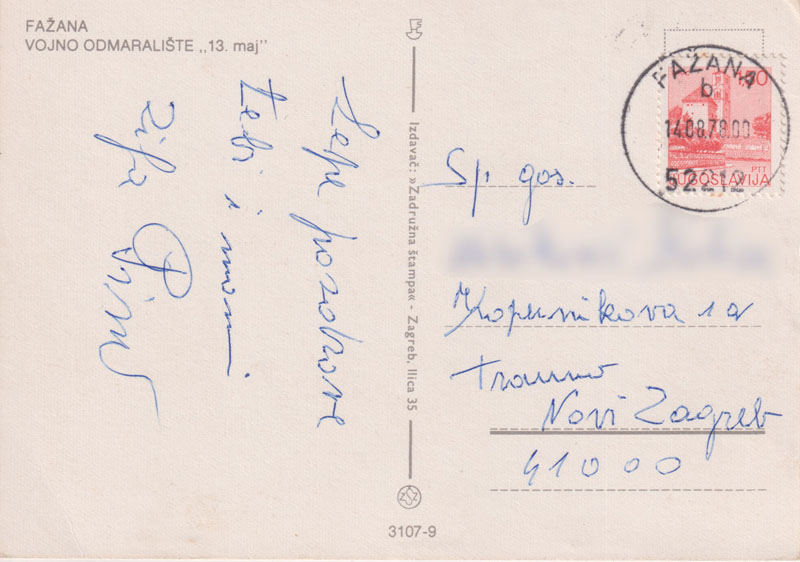 FAŽANA
VOJNO ODMARALIŠTE „13. maj”
Lepe pozdrave
tebi i mami
Izdavač: »Zadružna štampa« - Zagreb, Ilica 35
3107-9
FAŽANA
b
14.08.78.00
52212
PTT
JUGOSLAVIJA
Sp. gos.
Kopernikova 1a
Novi Zagreb
41000